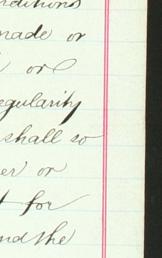 nditions
made or
or
egularity
shall so
er or
t for
nd the